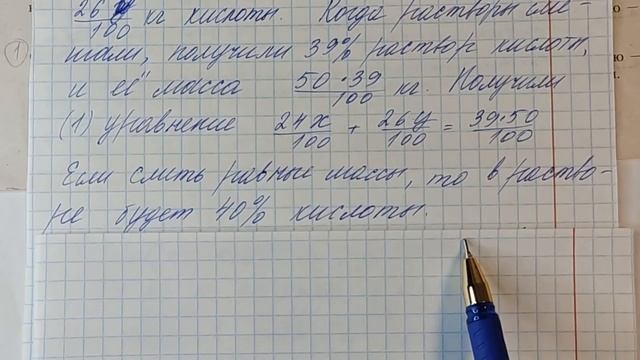 26 y/100 кг кислоты. Когда растворы сме-
шали, получили 39% раствор кислоты,
и её масса 50·39/100 кг. Получили
(1) уравнение 24x/100 + 26y/100 = 39·50/100
Если слить равные массы, то в раство-
ре будет 40% кислоты.